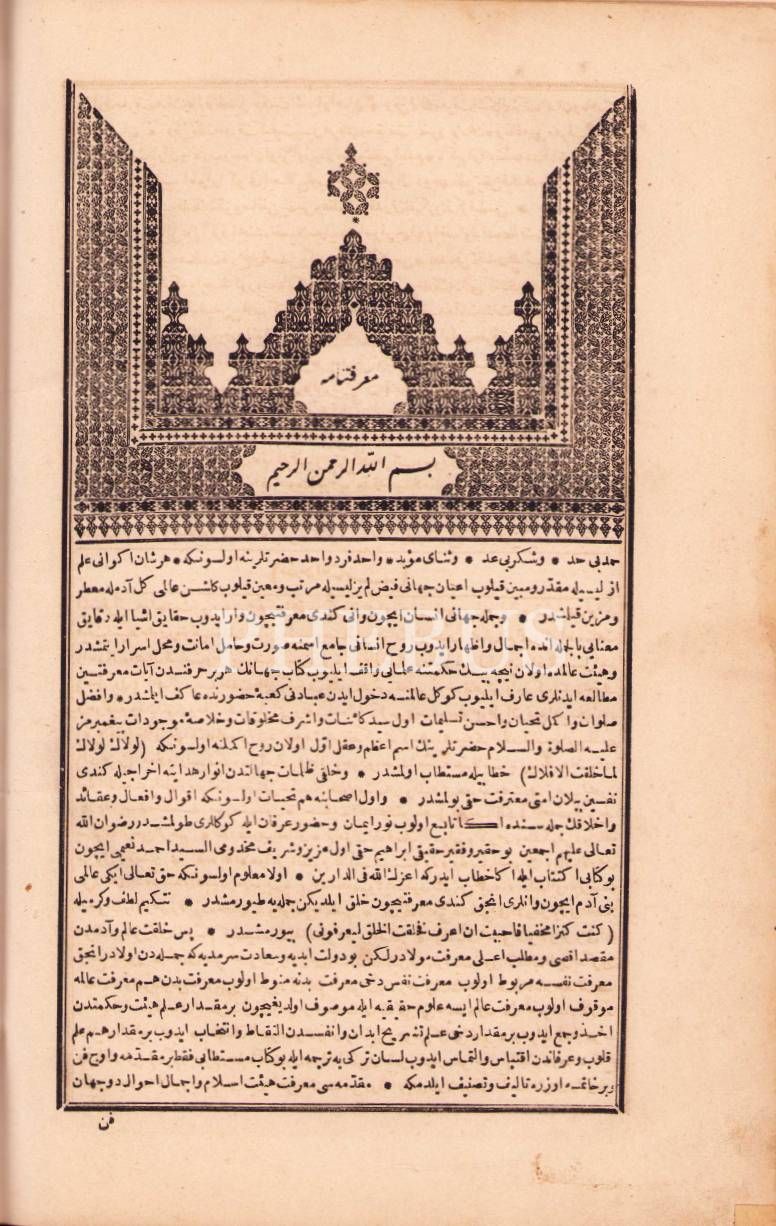 معرفتنامه
بسم الله الرحمن الرحيم
حمد بی حد * وشکر بی عد * وثنای مؤبد * واحد فرد واحد حضرتلرینه اولسونکه * هر شان اکوانی علم
ازلیسیله مقدر ومبین قیلوب اعیان جهانی فیض لم یزلیسیله مرتب ومعین قیلوب کلشن عالمی کل آدمله معطر
ومزین قیلمشدر * وجمله جهانی انسان ایچون وانی کندی معرفتیچون وار ایدوب حقایق اشیا ایله دقایق
معنایی بالجمله انده اجمال واظهار ایدوب روح انسانی جامع اسمنه صورت وحامل امانت ومحل اسرار ایتمشدر
وهیئت عالمده اولان نیجه بیك حکمتنه علمانی واقف ایلیوب کتاب جهانك هر بر حرفندن آیات معرفتین
مطالعه ایدنلری عارف ایلیوب کوکل عالمنه دخول ایدن عبادنی کعبهٔ حضورنده عاکف ایلمشدر * وافضل
صلوات واکمل تحیات واحسن تسلیمات اول سید کائنات واشرف مخلوقات وخلاصهٔ موجودات پیغمبرمز
علیه الصلوة والسلام حضرتلرینك اسم اعظم وعقل اول اولان روح اکملنه اولسونکه (لولاك لولاك
لما خلقت الافلاك) خطابیله مستطاب اولمشدر * وخلقی ظلمات جهالتدن انوار هدایته اخراجیله کندی
نفسین بیلان امتی معرفت حقی بولمشدر * واول اصحابنه هم تحیات اولسونکه اقوال وافعال وعقائد
واخلاقك جمله سنده اکا تابع اولوب نور ایمان وحضور عرفان ایله کوکللری طولمشدر رضوان الله
تعالی علیهم اجمعین بو حقیر وفقیر حقیقی ابراهیم حقی اول عزیز وشریف مخدومی السید احمد نعیمی ایچون
بو کتابی اکتتاب ایله اکا خطاب ایدرکه اعزك الله فی الدارین * اولا معلوم اولسونکه حق تعالی ایکی عالمی
بنی آدم ایچون وانلری انجق کندی معرفتیچون خلق ایلدیکن جمله یه طیورمشدر * تتکیم لطف وکرمیله
(کنت کنزا مخفیا فاحببت ان اعرف فخلقت الخلق لیعرفونی) بیورمشدر * پس خلقت عالم وآدمدن
مقصد اقصی ومطلب اعلی معرفت مولادر لکن بو دولت ابدیه وسعادت سرمدیه که جمله دن اولادر انجق
معرفت نفسه مربوط اولوب معرفت نفس دخی معرفت بدنه منوط اولوب معرفت بدن هم معرفت عالمه
موقوف اولوب معرفت عالم ایسه علوم حقیقیه ایله موصوف اولدیغیچون بر مقدار علم هیئت وحکمتدن
اخذ وجمع ایدوب بر مقدار دخی علم تشریح ابدان وانفسدن التقاط وانتخاب ایدوب بر مقدار هم علم
قلوب وعرفاندن اقتباس والتماس ایدوب لسان ترکی یه ترجمه ایله بو کتاب مستطابی فقط بر مقدمه واوج فن
وبر خاتمه اوزره تالیف وتصنیف ایلدمکه * مقدمه سی معرفت هیئت اسلام واجمال احوال دو جهان
فن